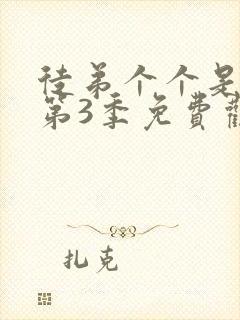 徒弟个个是
第3季免費
扎克